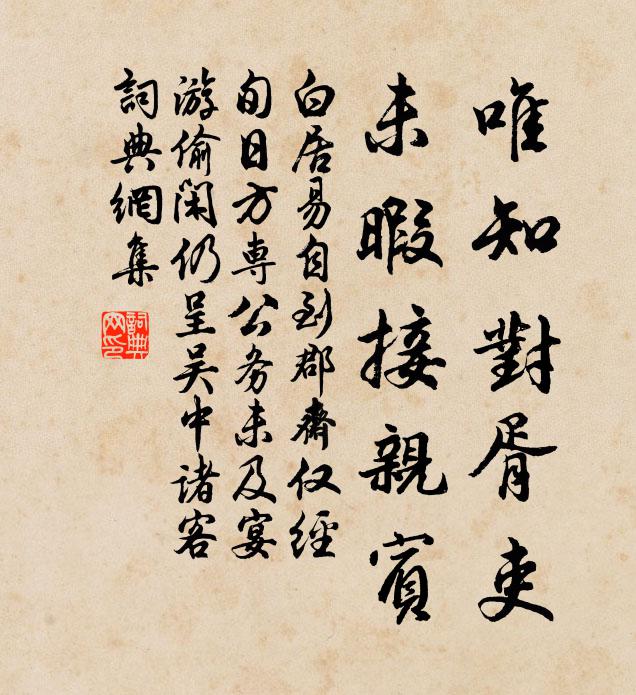 唯知對胥吏
未暇接親賓
白居易自到郡齋仅經
旬日方專公务未及宴
游偷閑仍呈吴中诸客
詞典網集
詞典網印